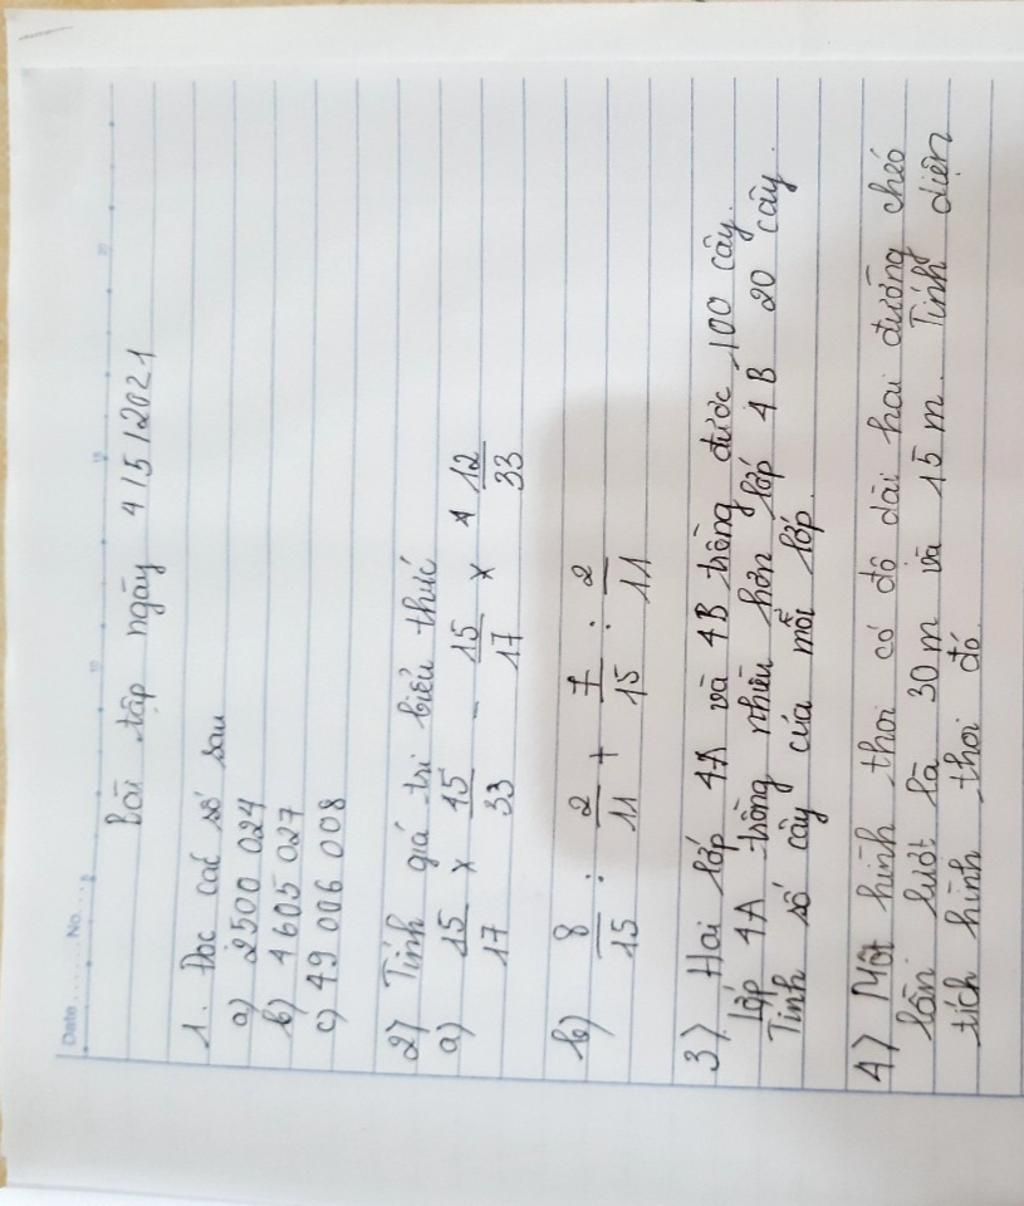 Date ........ No. ....
Bài tập ngày 4/5/2021
1. Đọc các số sau
a) 2500 024
b) 4 605 027
c) 49 006 008
2) Tính giá trị biểu thức
a) 15/17 x 45/33 - 15/17 x 12/33
b) 8/15 : 2/11 + 7/15 : 2/11
3) Hai lớp 4A và 4B trồng được 100 cây.
lớp 4A trồng nhiều hơn lớp 4B 20 cây.
Tính số cây của mỗi lớp.
4) Một hình thoi có độ dài hai đường chéo
lần lượt là 30 m và 15 m. Tính diện
tích hình thoi đó.